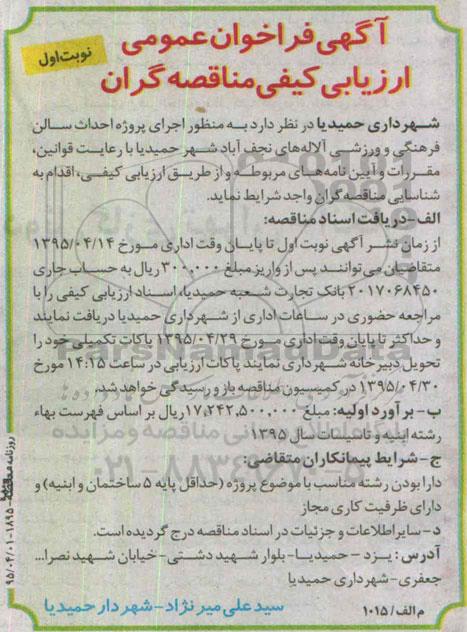 آگهی فراخوان عمومی
ارزیابی کیفی مناقصه گران
نوبت اول
شهرداری حمیدیا در نظر دارد به منظور اجرای پروژه احداث سالن
فرهنگی و ورزشی آلاله‌های نجف آباد شهر حمیدیا با رعایت قوانین،
مقررات و آیین نامه‌های مربوطه و از طریق ارزیابی کیفی، اقدام به
شناسایی مناقصه گران واجد شرایط نماید.
الف- دریافت اسناد مناقصه:
از زمان نشر آگهی نوبت اول تا پایان وقت اداری مورخ ۱۳۹۵/۰۴/۱۴
متقاضیان می‌توانند پس از واریز مبلغ ۳۰۰,۰۰۰ ریال به حساب جاری
۲۰۱۷۰۶۸۴۵۰ بانک تجارت شعبه حمیدیا، اسناد ارزیابی کیفی را با
مراجعه حضوری در ساعات اداری از شهرداری حمیدیا دریافت نمایند
و حداکثر تا پایان وقت اداری مورخ ۱۳۹۵/۰۴/۲۹ پاکات تکمیلی خود را
تحویل دبیرخانه شهرداری نمایند پاکات ارزیابی در ساعت ۱۴:۱۵ مورخ
۱۳۹۵/۰۴/۳۰ در کمیسیون مناقصه باز و رسیدگی خواهد شد.
ب- برآورد اولیه: مبلغ ۱۷,۲۴۲,۵۰۰,۰۰۰ ریال بر اساس فهرست بهاء
رشته ابنیه و تاسیسات سال ۱۳۹۵
ج- شرایط پیمانکاران متقاضی:
دارا بودن رشته مناسب با موضوع پروژه (حداقل پایه ۵ ساختمان و ابنیه) و
دارای ظرفیت کاری مجاز
د- سایر اطلاعات و جزئیات در اسناد مناقصه درج گردیده است.
آدرس: یزد - حمیدیا- بلوار شهید دشتی- خیابان شهید نصرا...
جعفری- شهرداری حمیدیا
سیدعلی میرنژاد- شهردار حمیدیا
م الف/ ۱۰۱۵
روزنامه ۱۸۹۵-۹۵/۰۴/۰۱
ParsNamadData
پایگاه اطلاع رسانی مناقصه و مزایده
۰۲۱-۸۸۳۴۹۶۷۰-۵